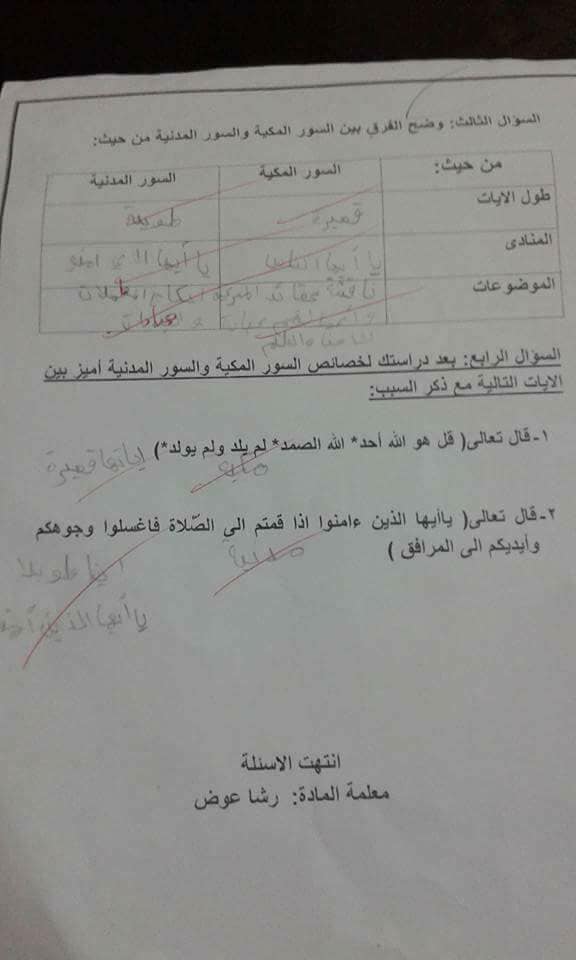 السؤال الثالث: وضح الفرق بين السور المكية والسور المدنية من حيث:
من حيث: السور المكية السور المدنية
طول الايات قصيرة طويلة
المنادى يا أيها الناس يا أيها
الموضوعات
السؤال الرابع: بعد دراستك لخصائص السور المكية والسور المدنية أميز بين
الايات التالية مع ذكر السبب:
١- قال تعالى( قل هو الله أحد* الله الصمد* لم يلد ولم يولد*) اياتها قصيرة
مكية
٢- قال تعالى( ياأيها الذين ءامنوا اذا قمتم الى الصّلاة فاغسلوا وجوهكم
وأيديكم الى المرافق )
مدنية
يا أيها الذين
انتهت الاسئلة
معلمة المادة: رشا عوض